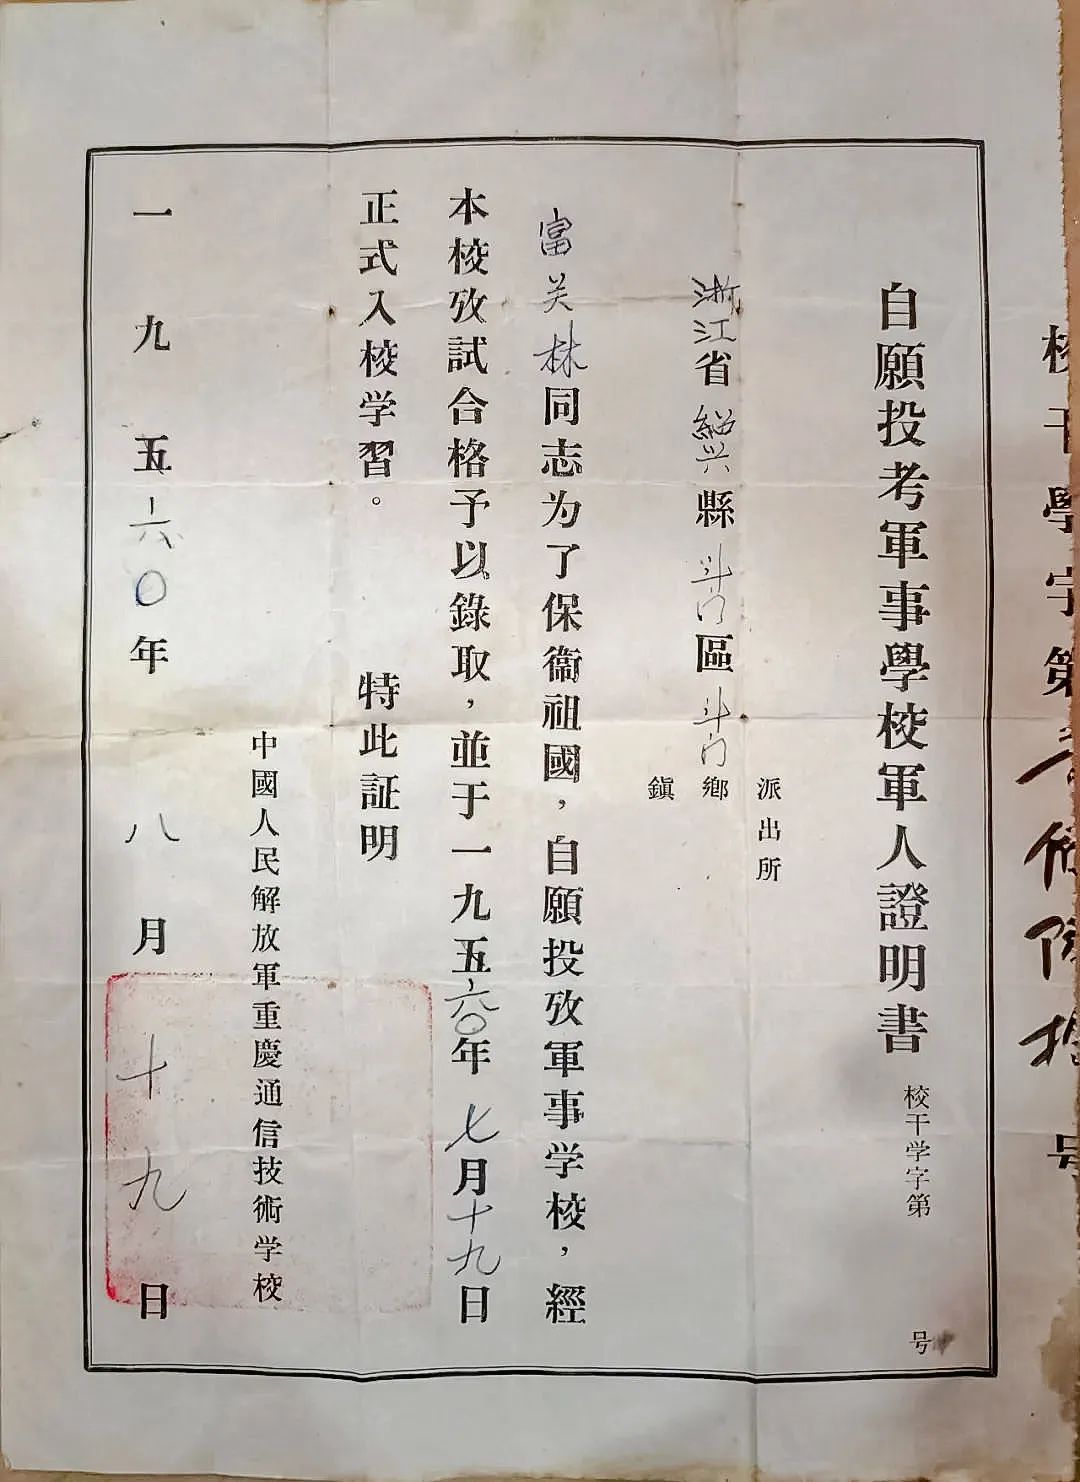 校干學字第
号
自願投考軍事學校軍人證明書 校干学字第 号
派出所
浙江省紹兴縣斗门區斗门鄉
鎭
富关林同志为了保衞祖國，自願投攷軍事学校，經
本校攷試合格予以錄取，並于一九五六〇年七月十九日
正式入校学習。 特此証明
中國人民解放軍重慶通信技術学校
一九五六〇年八月十九日